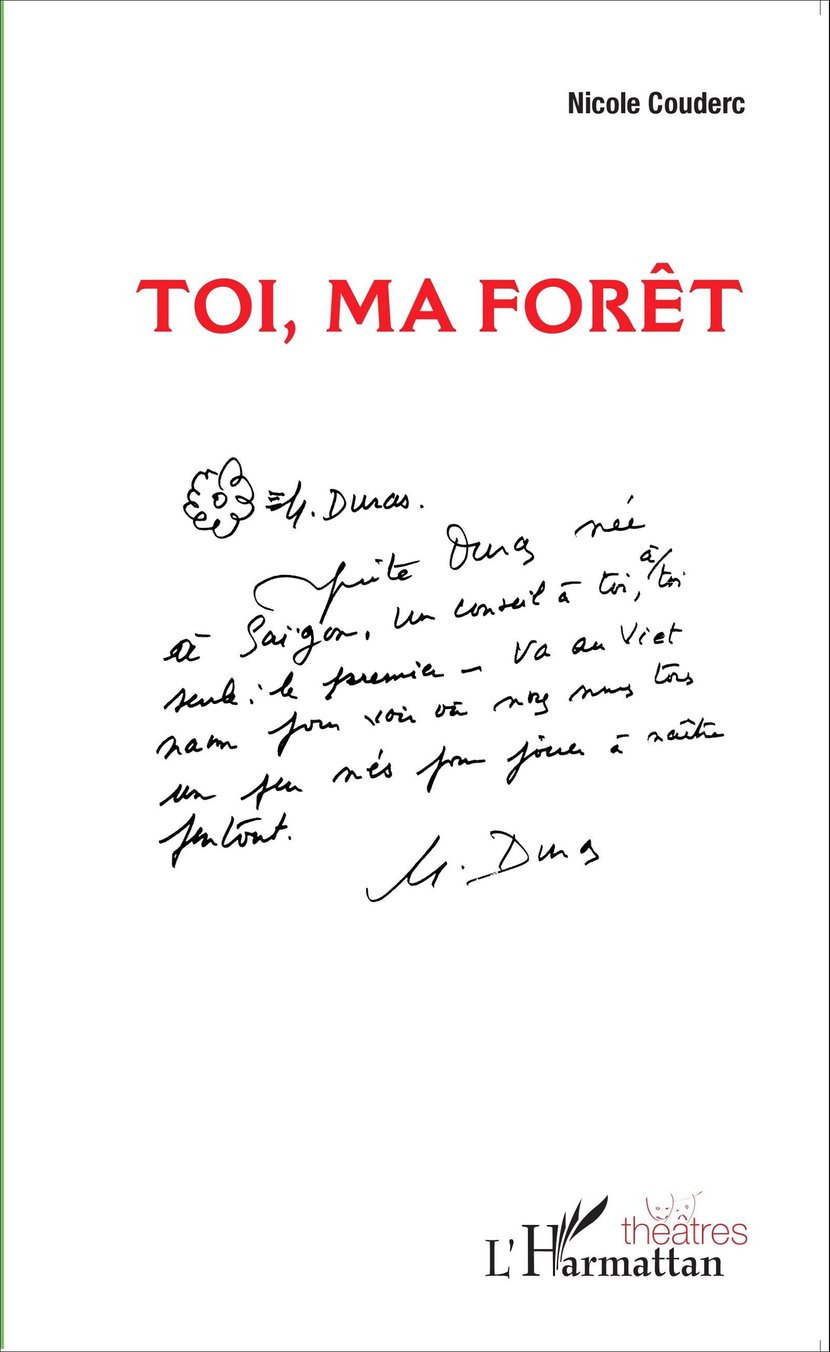 Nicole Couderc
TOI, MA FORÊT
M. Duras.
petite Duras née
à Saïgon. Un conseil à toi, à toi
seule : le premier – Va au Viet
nam pour voir où nous nous tous
un peu nés pour jouer à naître
partout.
M. Duras
théâtres
L'Harmattan